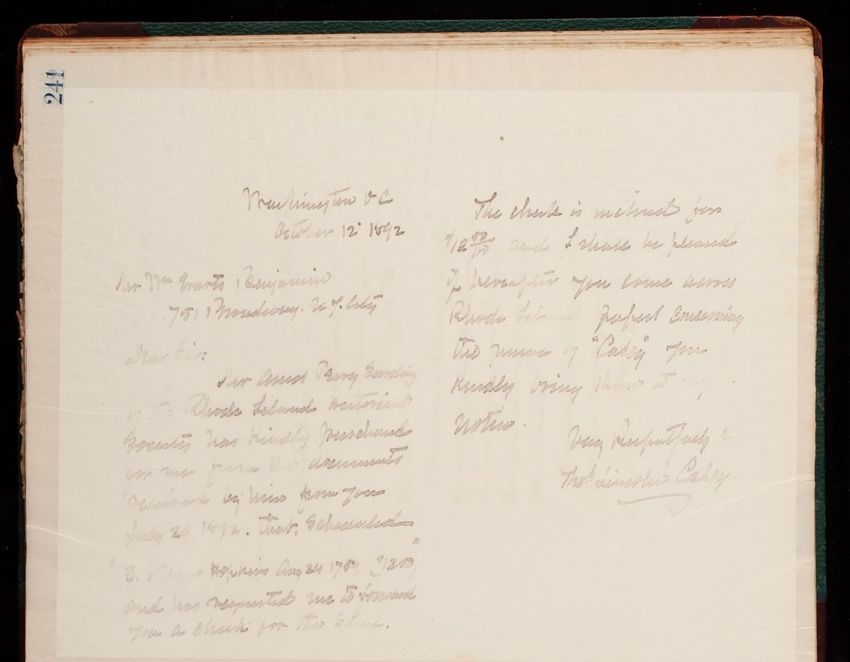 241
Washington D C
October 12th 1892
Mr Wm Evarts Benjamin
751 Broadway. N.Y. City
Dear Sir:
Mr Amos Perry Secretary
of the Rhode Island Historical
Society has kindly purchased
for me from the documents
received by him from you
July 29 1892. that, scheduled
Hopkins Aug 24 1784 ($12.00)"
and has requested me to forward
you a check for the same.
The check is inclosed for
$12 00/100 and I shall be pleased
if hereafter you come across
Rhode Island papers concerning
the name of "Casey" you
kindly bring them to my
notice.
Very Respectfully
Thos Lincoln Casey